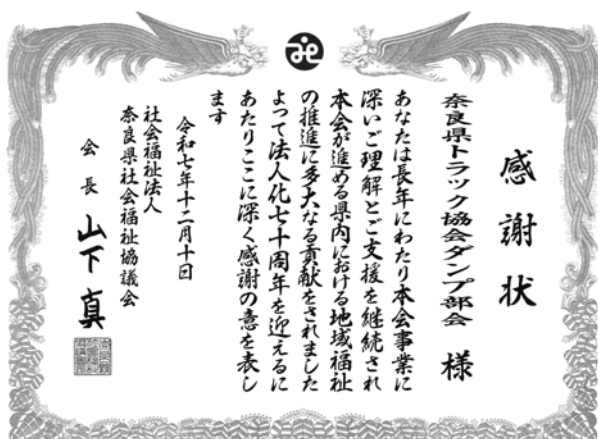 感謝状
奈良県トラック協会ダンプ部会 様
あなたは長年にわたり本会事業に
深いご理解とご支援を継続され
本会が進める県内における地域福祉
の推進に多大なる貢献をされました
よって法人化七十周年を迎えるに
あたりここに深く感謝の意を表し
ます
令和七年十二月十日
社会福祉法人
奈良県社会福祉協議会
会長 山下真